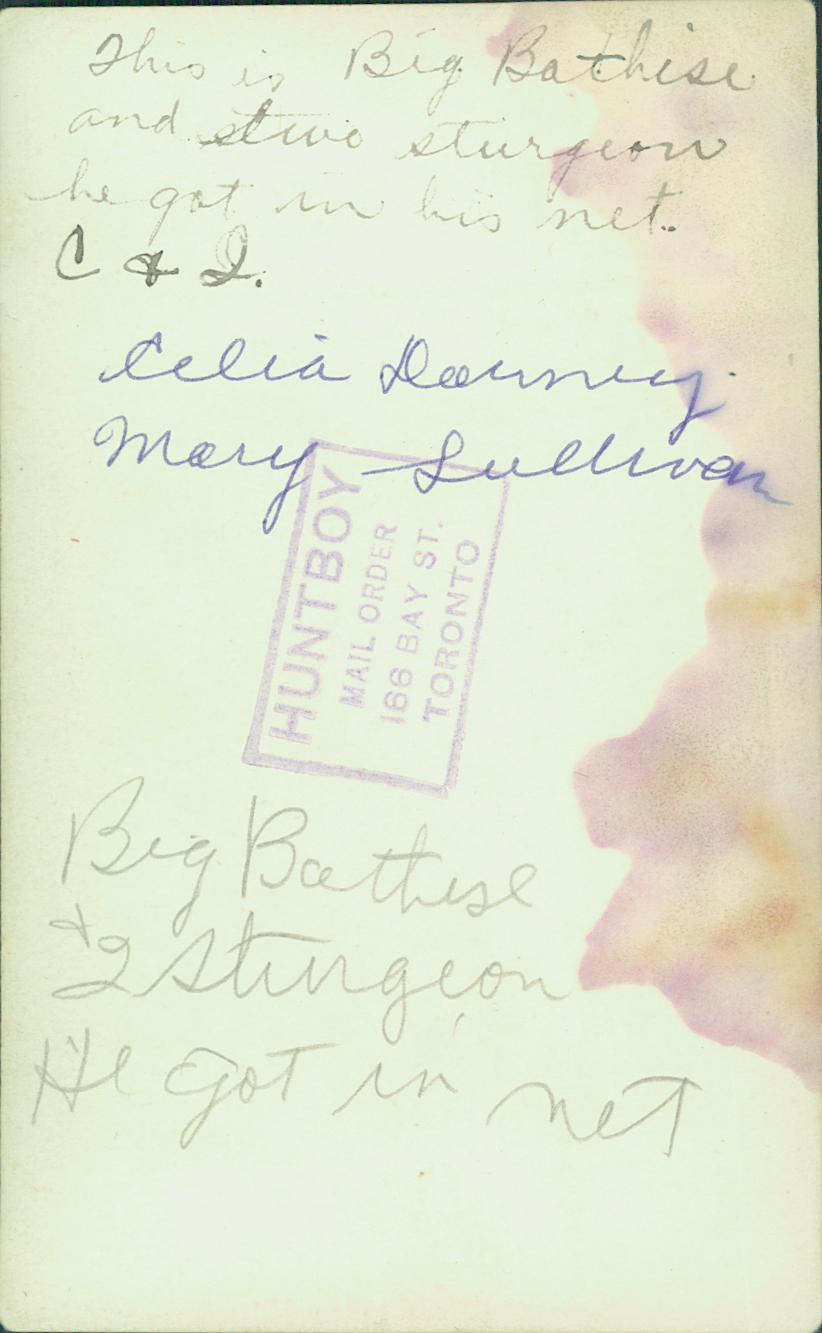 This is Big Bathise
and two sturgeon
he got in his net.
C & I.
Celia Downey.
Mary Sullivan
HUNTBOY
MAIL ORDER
166 BAY ST.
TORONTO
Big Bathise
& 2 Sturgeon
He got in net